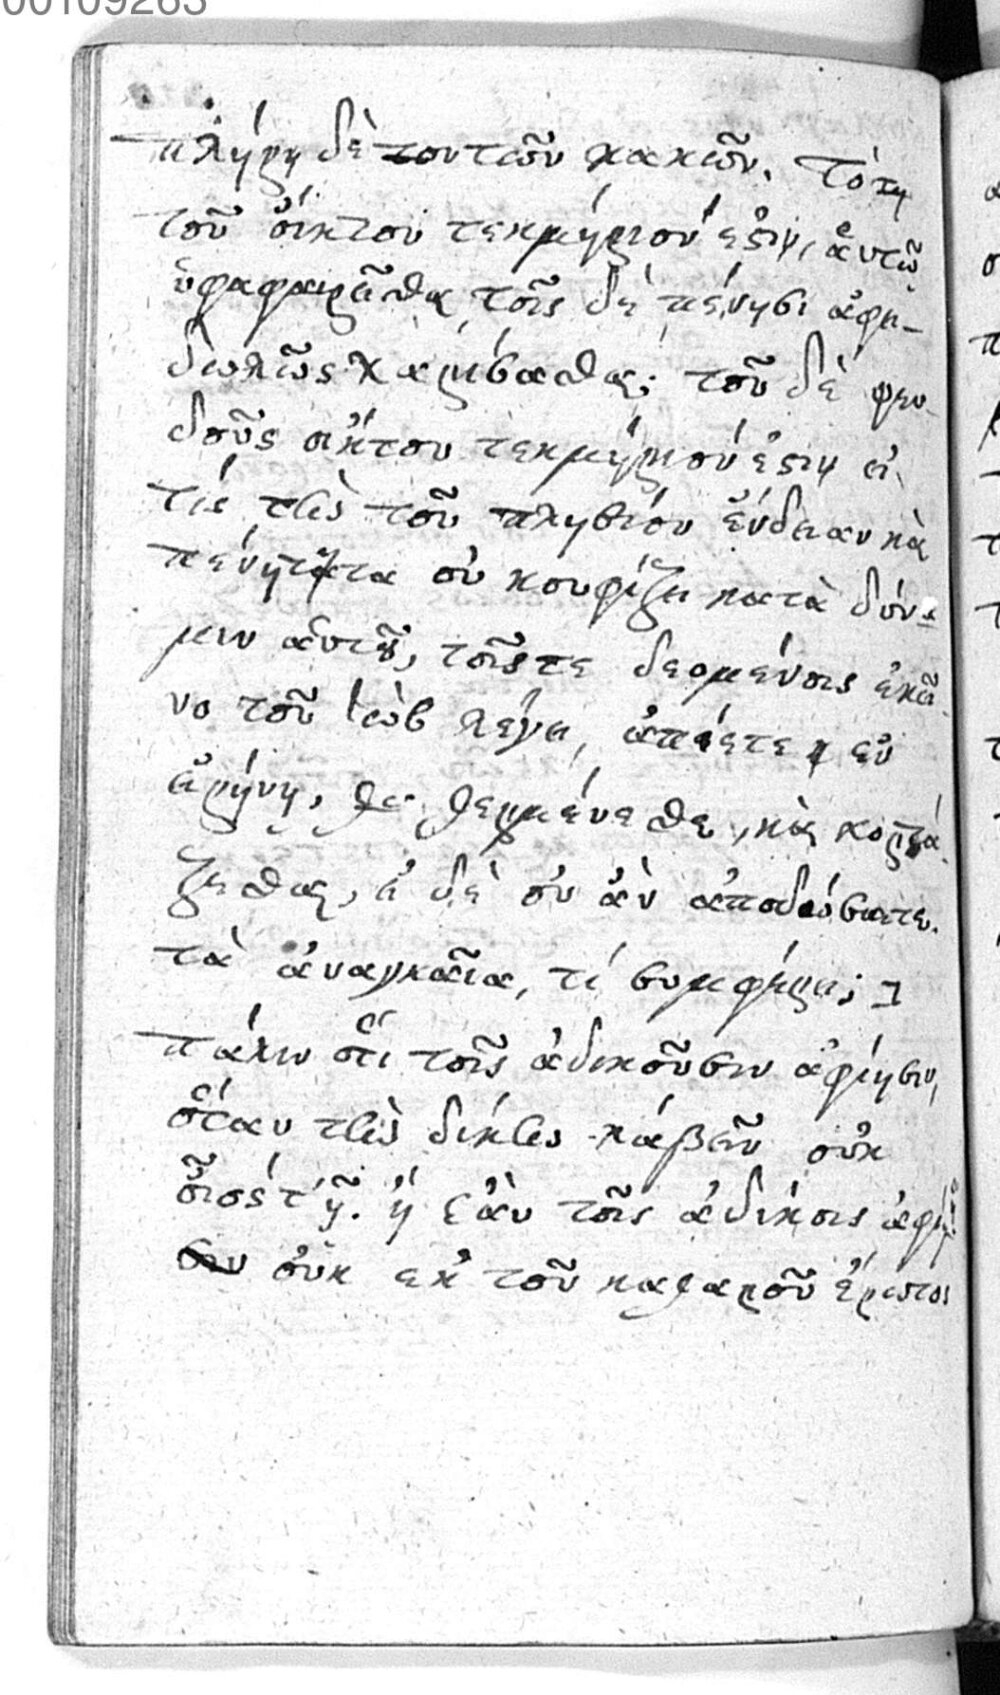 00109263
πλήρη δὲ τουτῶν κακῶν. Τὸ τῆ
τοῦ οἴκτου τεκμήριον ἐστιν, ἀυτῶ
ὑφαφαιρεῖσθαι τοῖς δὲ πένησι ἀφει-
δωλῶς χαρίσασθαι; τοῦ δὲ ψευ-
δοῦς οἴκτου τεκμήριον ἐστιν εἰ
τίς τὴν τοῦ πλησίου ἔνδειαν καὶ
πένητατα οὐ κουφίζει κατὰ δύνα-
μιν αὐτοῦ, τοῖς τε δεομένοις ἐκεῖ-
νο τοῦ Ἰὼβ λέγει, ἀπίετε ἐν
εἰρήνη, θερμένεσθε, καὶ χορτά-
ζεσθαι, εἰ δὲ οὐ ἂν ἀποδώσητε
τὰ ἀναγκαῖα, τί συμφέρει;
πάλιν ὅτι τοῖς ἀδικοῦσιν ἀφίησιν,
ὅταν τὴν δίκην λάβειν οὐκ
οἷός τ' ᾖ. ἢ ἐὰν τοῖς ἀδίκοις ἀφίη
σιν οὐκ ἐκ τοῦ καθαροῦ ἔρωτος